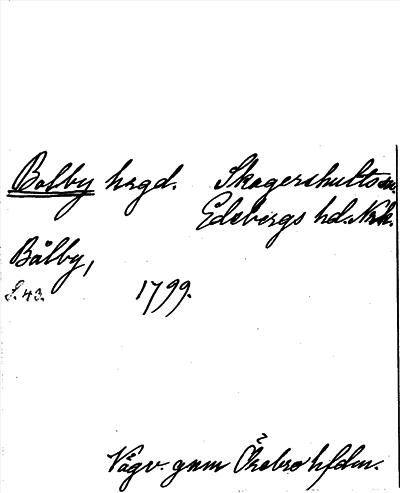 Bolby hrgd. Skagershults sn.
Edsbergs hd. Nrk.
Bålby,
S. 43. 1799.
Vägv. gnm Örebro hfdm.